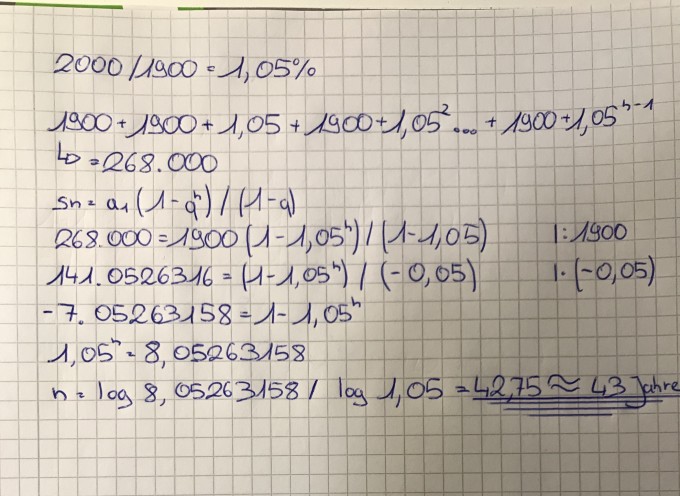 2000/1900 = 1,05%
1900 + 1900 + 1,05 + 1900 + 1,05² ... + 1900 + 1,05ⁿ⁻¹
↳ = 268.000
Sn = a₁ (1 - qⁿ) / (1 - q)
268.000 = 1900 (1 - 1,05ⁿ) / (1 - 1,05) |: 1900
141.0526316 = (1 - 1,05ⁿ) / (-0,05) |· (-0,05)
-7.05263158 = 1 - 1,05ⁿ
1,05ⁿ = 8,05263158
n = log 8,05263158 / log 1,05 = 42,75 ≈ 43 Jahre